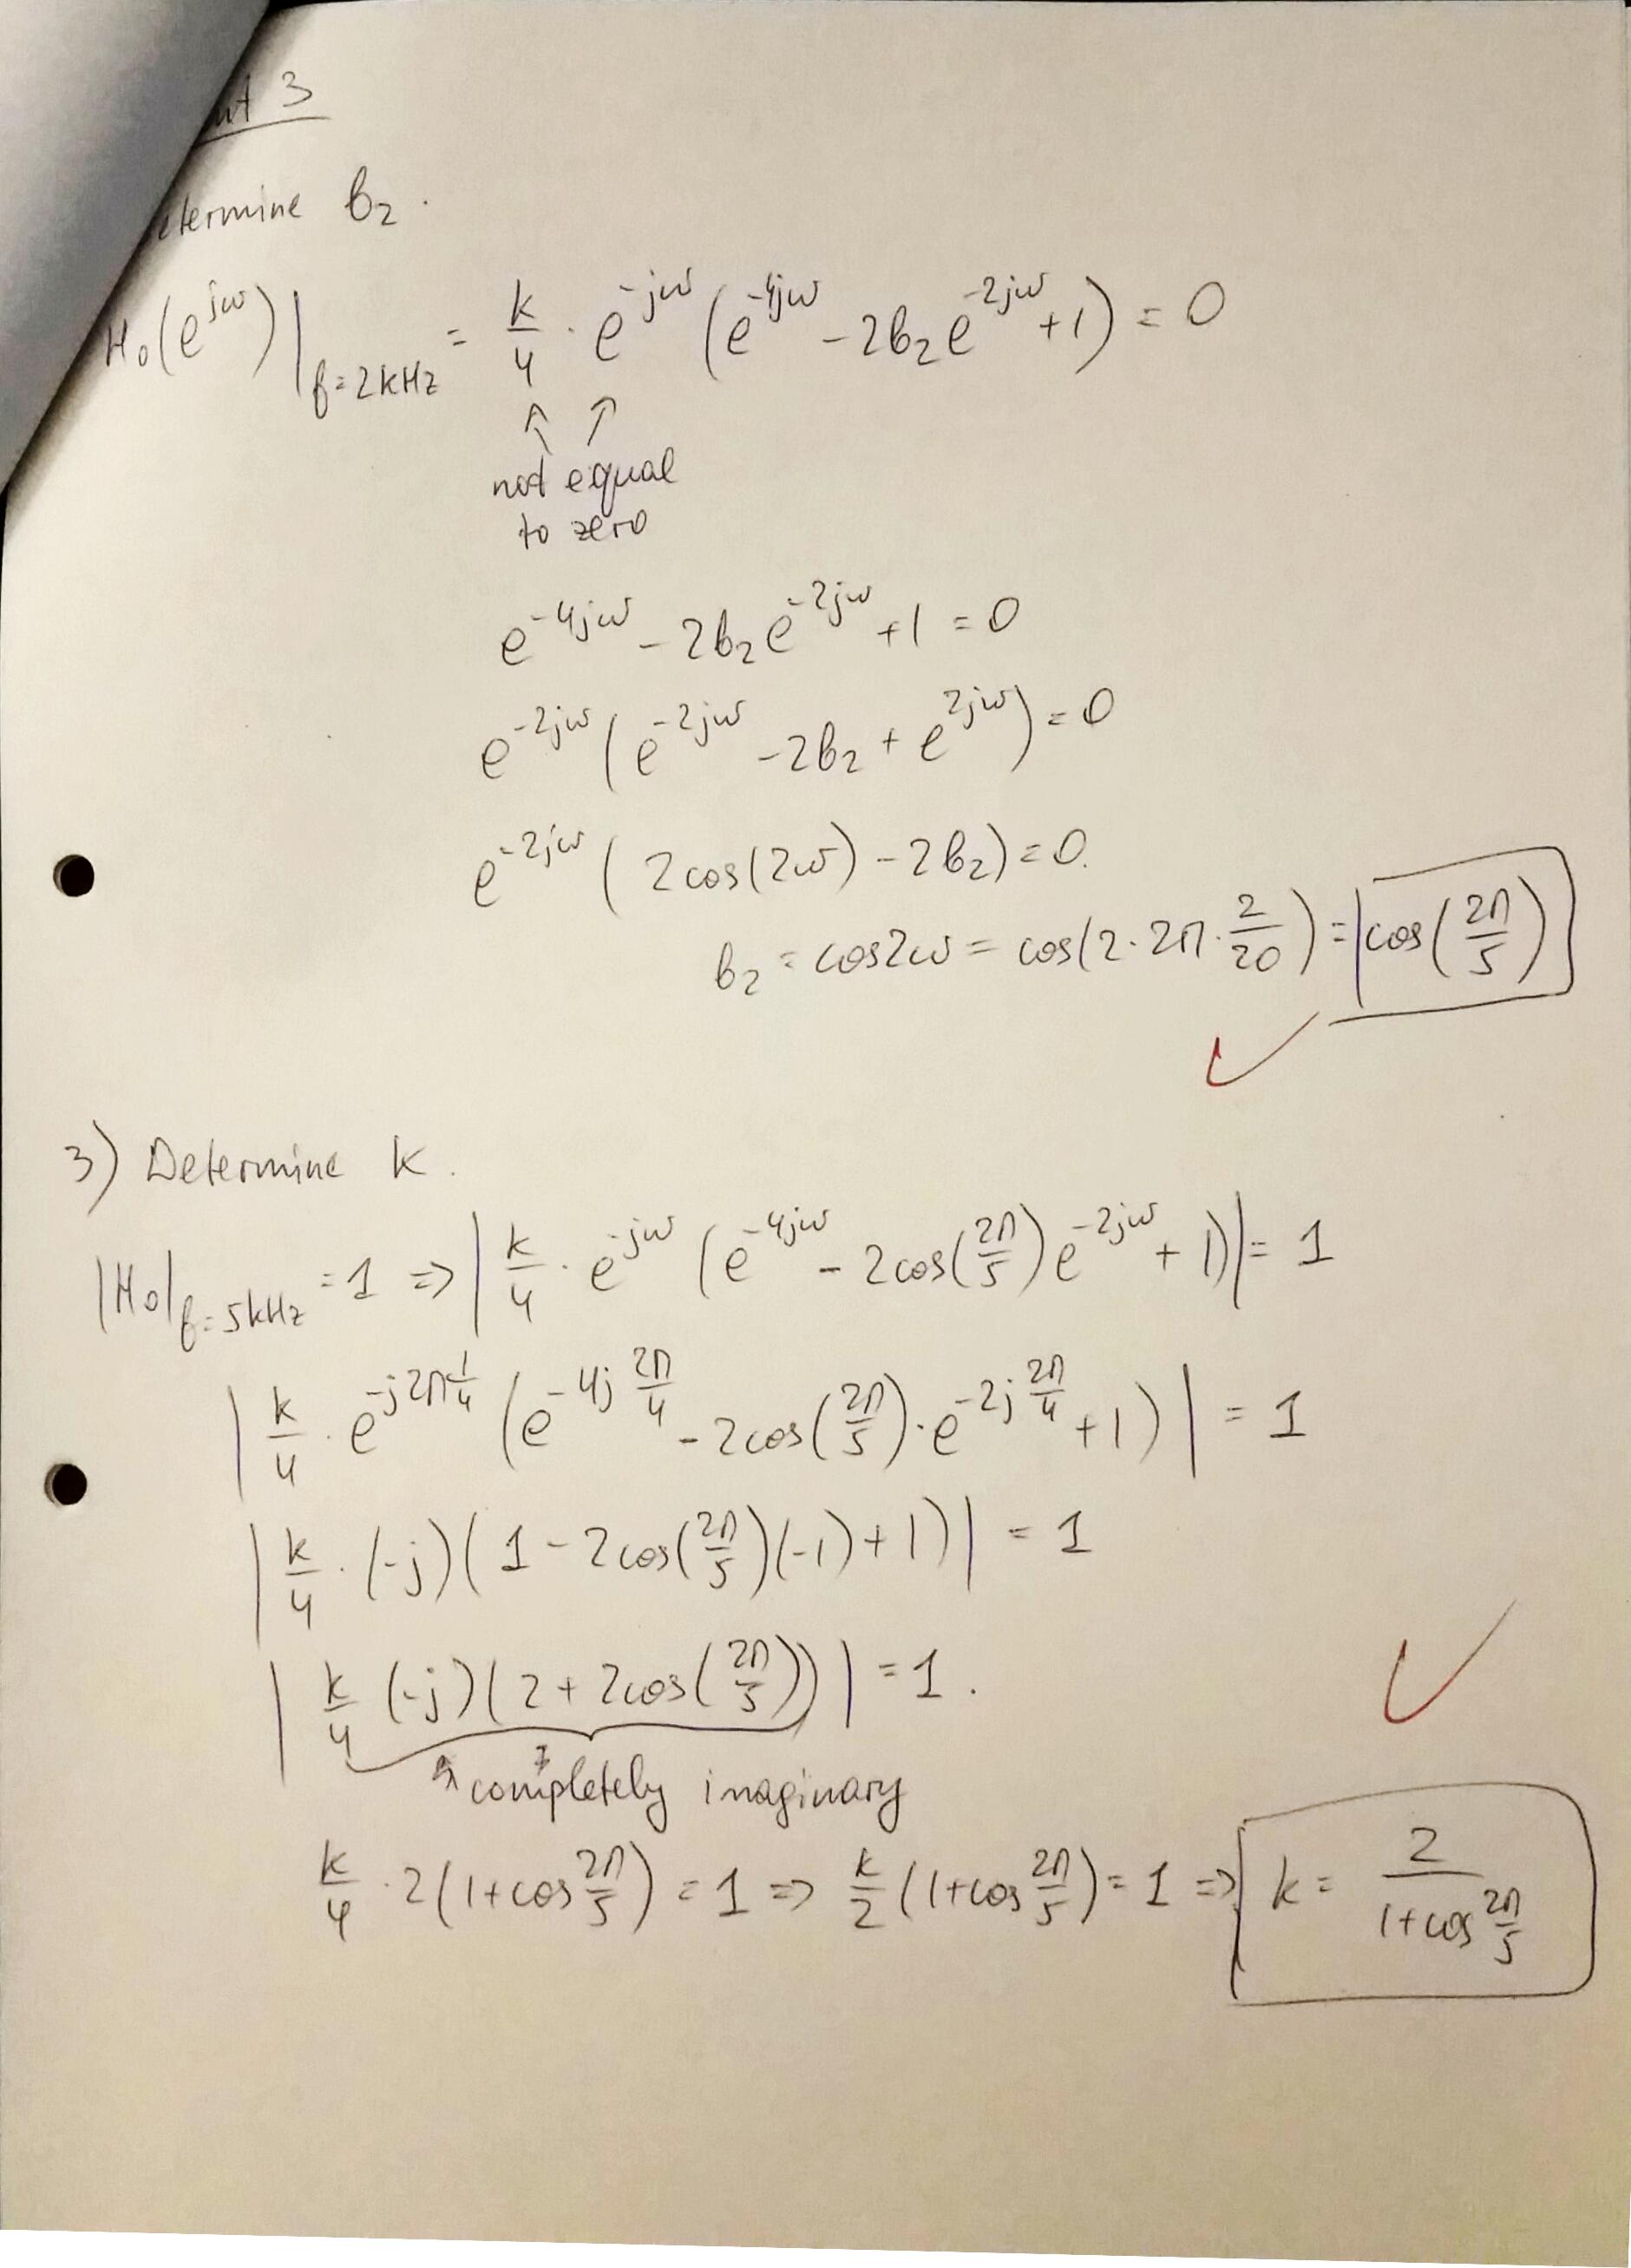 3
b₂.
H₀(e^{jω})|_{f=2kHz} = k/4 · e^{-jω} (e^{-4jω} - 2b₂e^{-2jω} + 1) = 0
↑ ↑
not equal
to zero
e^{-4jω} - 2b₂e^{-2jω} + 1 = 0
e^{-2jω} (e^{-2jω} - 2b₂ + e^{2jω}) = 0
e^{-2jω} (2cos(2ω) - 2b₂) = 0.
b₂ = cos2ω = cos(2·2π·2/20) = cos(2π/5)
3) Determine k.
|H₀|_{f=5kHz} = 1 => |k/4 · e^{-jω} (e^{-4jω} - 2cos(2π/5)e^{-2jω} + 1)| = 1
|k/4 · e^{-j2π1/4} (e^{-4j 2π/4} - 2cos(2π/5)·e^{-2j 2π/4} + 1)| = 1
|k/4 · (-j)(1 - 2cos(2π/5)(-1) + 1)| = 1
|k/4 (-j)(2 + 2cos(2π/5))| = 1.
completely imaginary
k/4 · 2(1+cos 2π/5) = 1 => k/2 (1+cos 2π/5) = 1 => k = 2/(1+cos 2π/5)